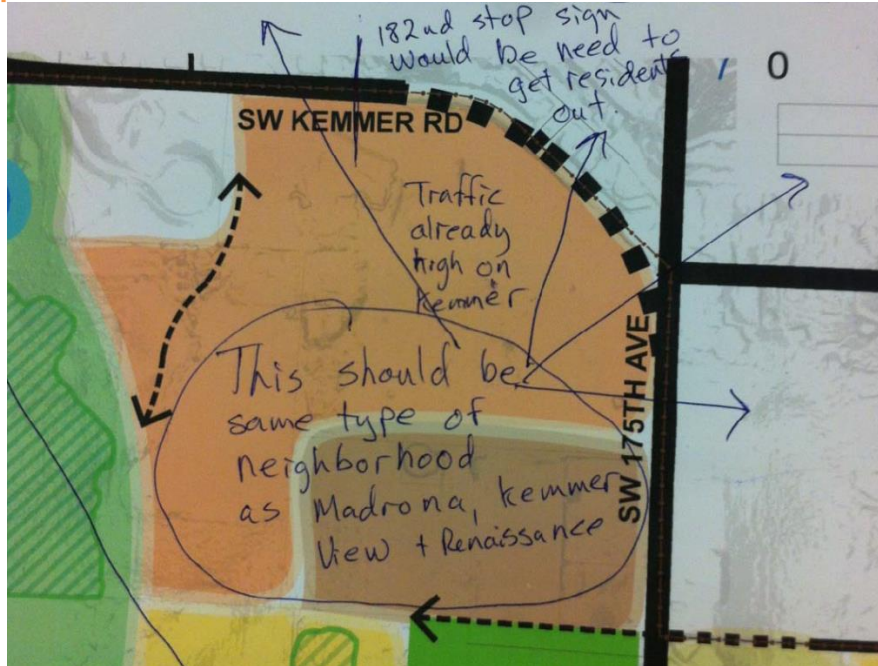 182nd stop sign
would be need to
get residents
out.
0
SW KEMMER RD
Traffic
already
high on
Kemmer
SW 175TH AVE
This should be
same type of
neighborhood
as Madrona, Kemmer
View + Renaissance